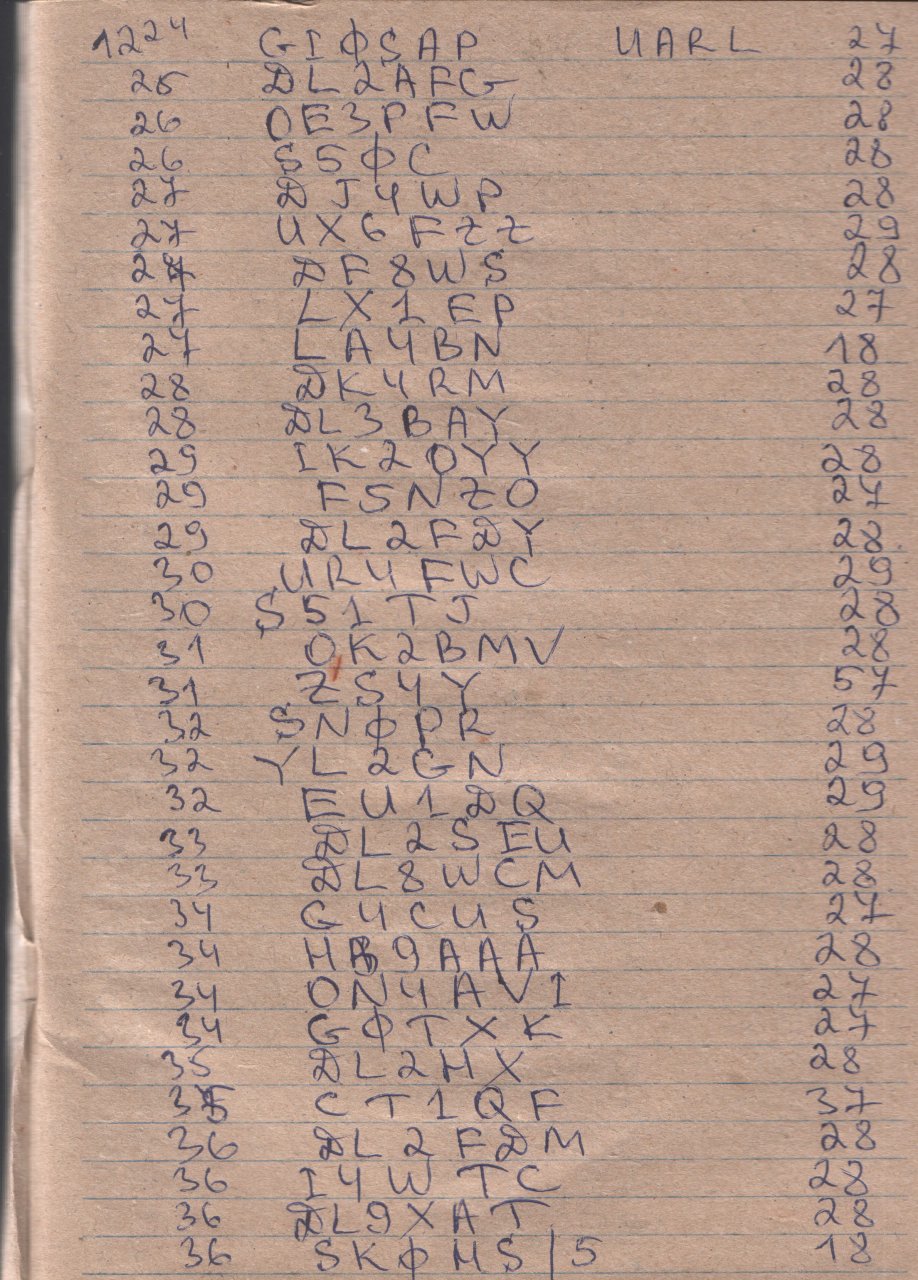 1224 GIØSAP UARL 27
25 DL2AFG 28
26 OE3PFW 28
26 S5ØC 28
27 DJ4WP 28
27 UX6FZZ 29
27 DF8WS 28
27 LX1EP 27
27 LA4BN 18
28 DK4RM 28
28 DL3BAY 28
29 IK2OYY 28
29 F5NZO 27
29 DL2FDY 28
30 UR4FWC 29
30 S51TJ 28
31 OK2BMV 28
31 ZS4Y 57
32 SNØPR 28
32 YL2GN 29
32 EU1DQ 29
33 DL2SEU 28
33 DL8WCM 28
34 G4CUS 27
34 HB9AAA 28
34 ON4AVI 27
34 GØTXK 27
35 DL2HX 28
35 CT1QF 37
36 DL2FDM 28
36 I4WTC 28
36 DL9XAT 28
36 SKØHS/5 18